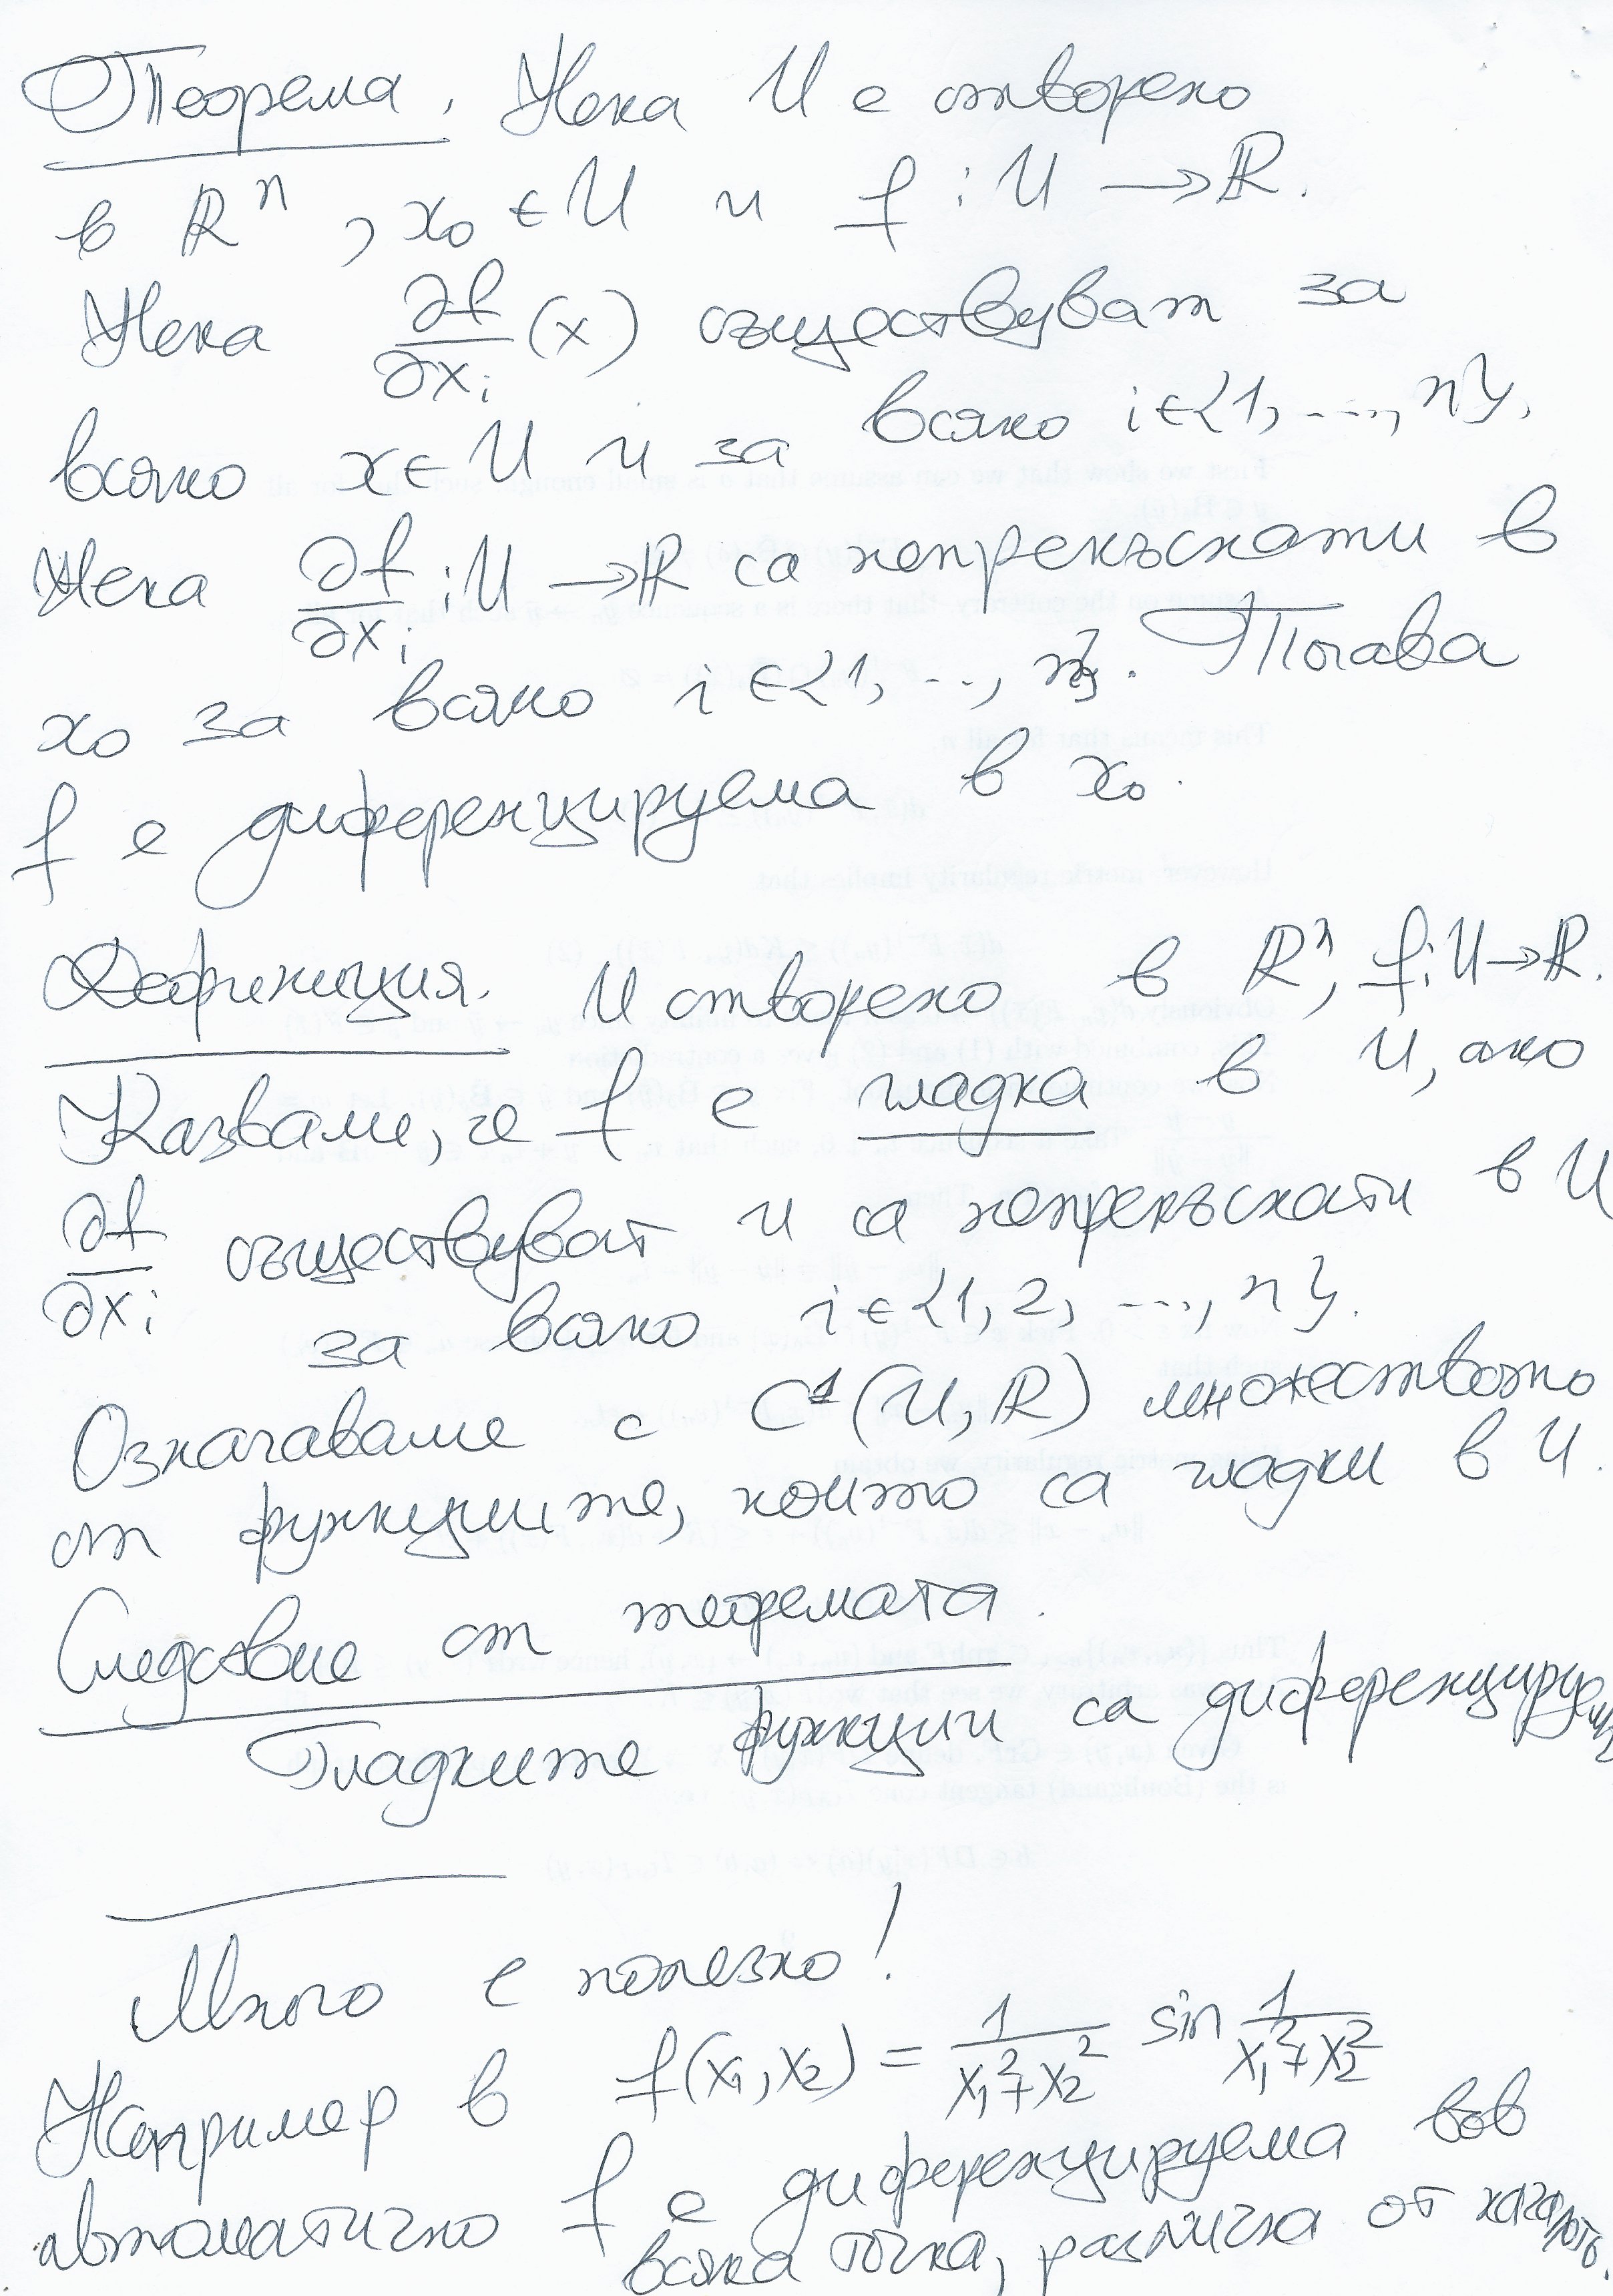 Теорема. Нека U е отворено
в ℝⁿ, x₀ ∈ U и f : U → ℝ.
Нека ∂f/∂xᵢ (x) съществуват за
всяко x ∈ U и за всяко i ∈ {1, ..., n}.
Нека ∂f/∂xᵢ : U → ℝ са непрекъснати в
x₀ за всяко i ∈ {1, ..., n}. Тогава
f е диференцируема в x₀.
Дефиниция. U отворено в ℝⁿ, f : U → ℝ.
Казваме, че f е гладка в U, ако
∂f/∂xᵢ съществуват и са непрекъснати в U
за всяко i ∈ {1, 2, ..., n}.
Означаваме с C¹(U, ℝ) множеството
от функциите, които са гладки в U.
Следствие от теоремата.
Гладките функции са диференцируеми
Много е полезно!
Например в f(x₁, x₂) = 1/(x₁² + x₂²) sin 1/(x₁² + x₂²)
автоматично f е диференцируема във
всяка точка, различна от началото.